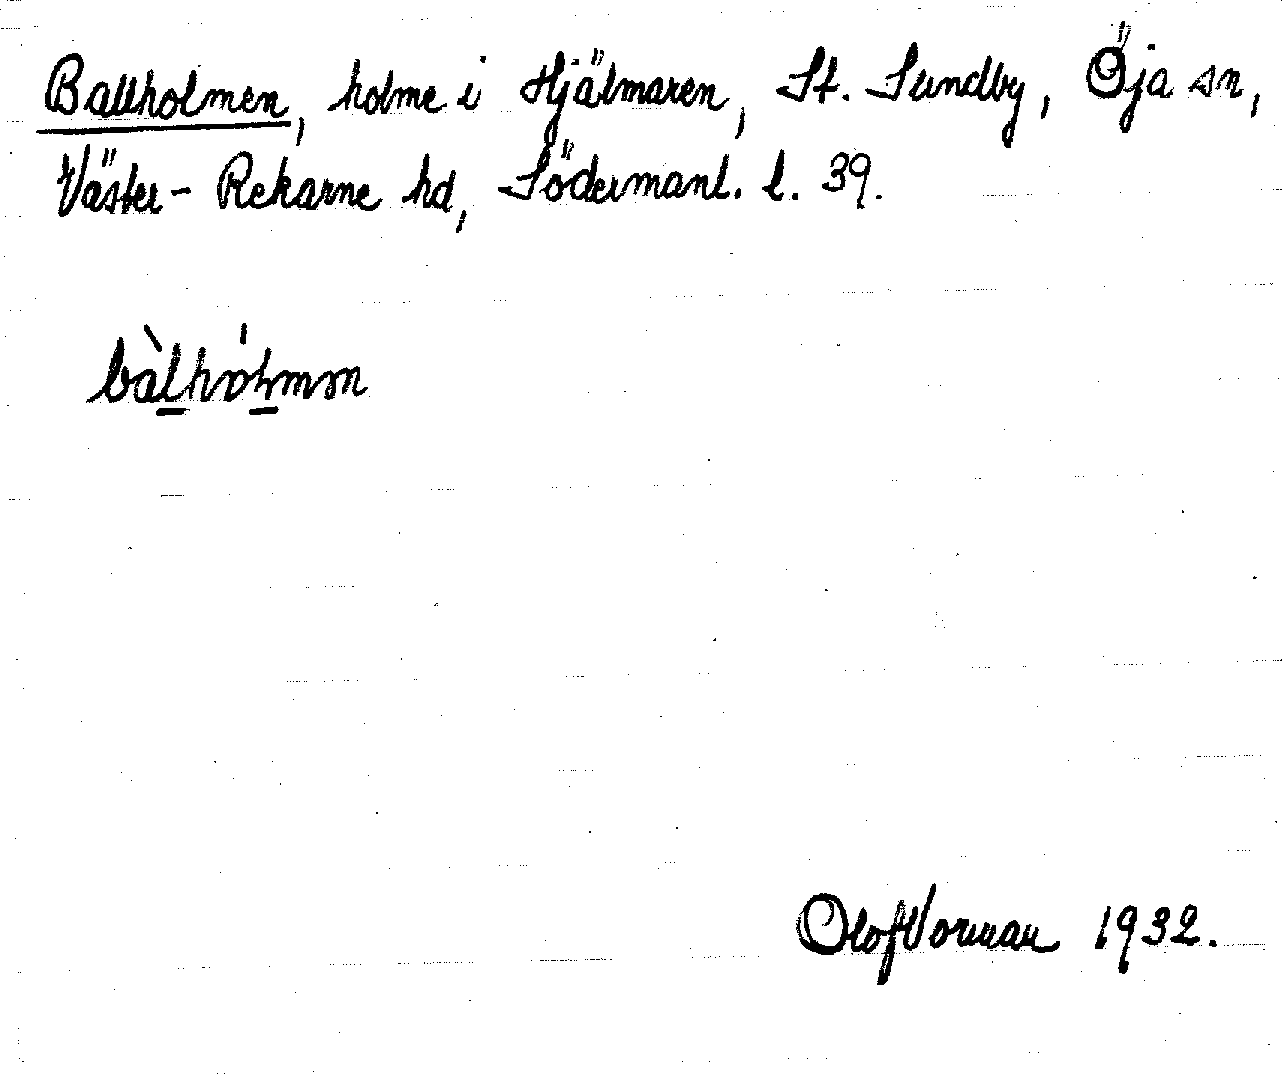 Ballholmen, holme i Hjälmaren, St. Sundby, Öja sn,
Väster-Rekarne hd, Södermanl. l. 39.
bàlhólmən
Olof Norman 1932.